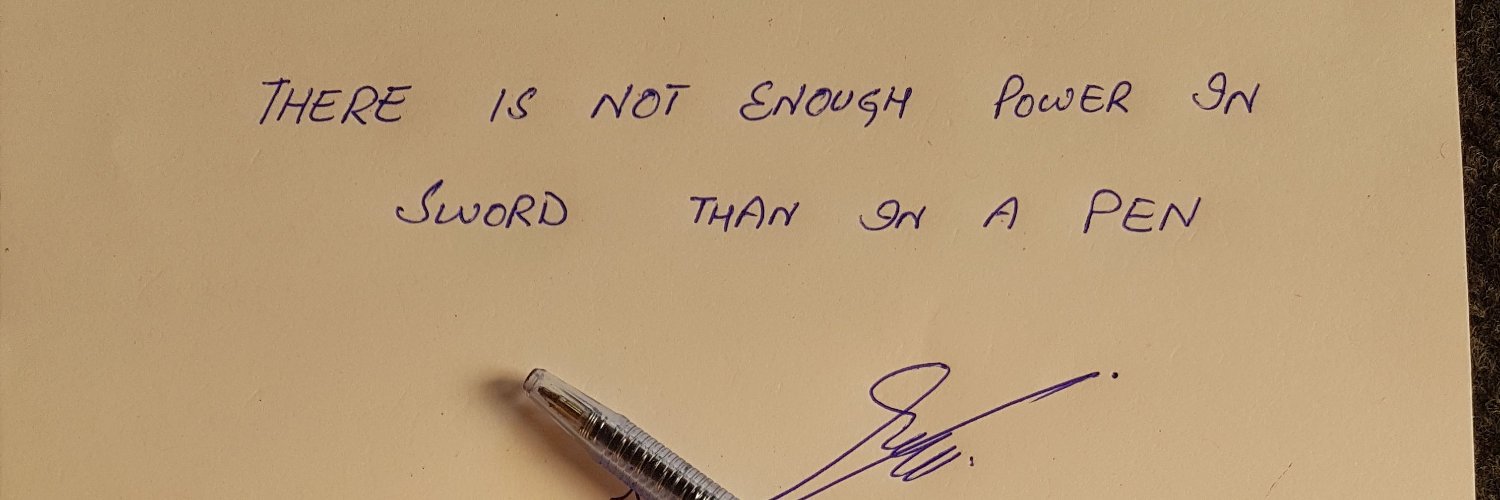 THERE IS NOT ENOUGH POWER IN
SWORD THAN IN A PEN